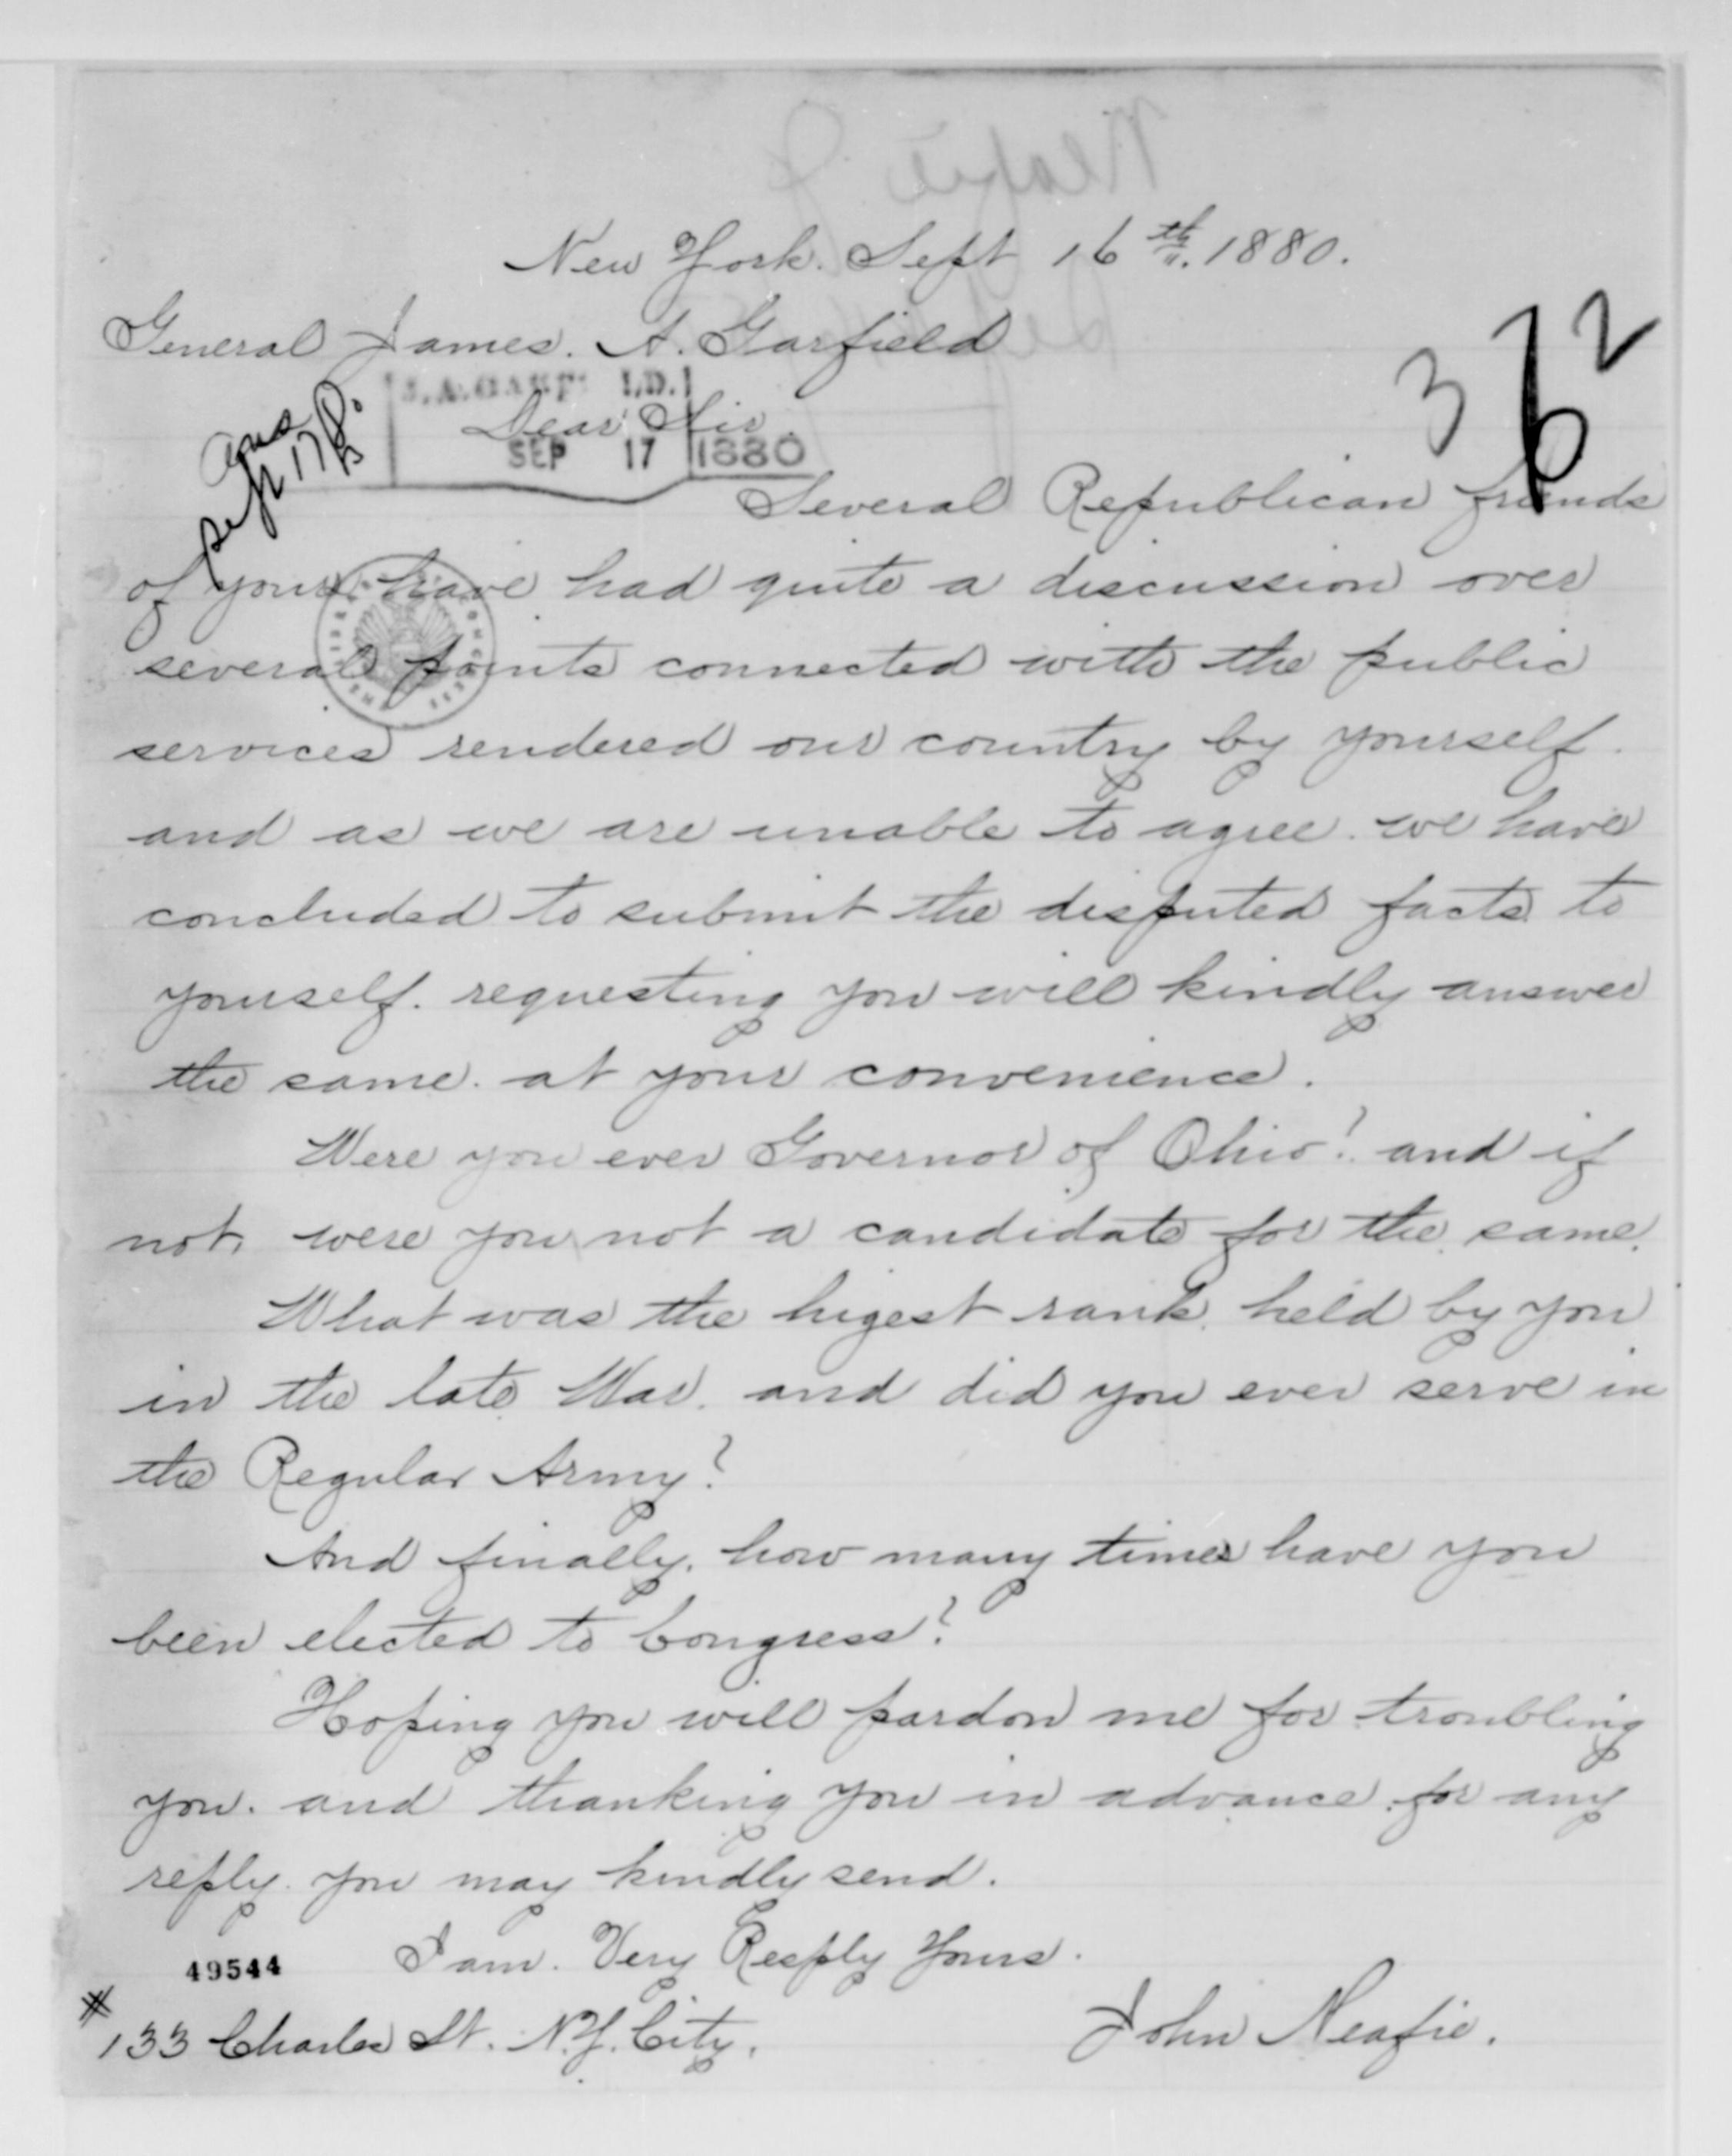 New York. Sept 16th. 1880.
General James. A. Garfield
J.A. GARFIELD.
Dear Sir.
SEP 17 1880
Ans
Sept 17 80
3 6 2
Several Republican friends
of yours have had quite a discussion over
several points connected with the public
services rendered our country by yourself.
and as we are unable to agree. we have
concluded to submit the disputed facts to
yourself. requesting you will kindly answer
the same. at your convenience.
Were you ever Governor of Ohio? and if
not, were you not a candidate for the same.
What was the higest rank. held by you
in the late War. and did you ever serve in
the Regular Army?
And finally. how many times have you
been elected to Congress?
Hoping you will pardon me for troubling
you. and thanking you in advance. for any
reply. you may kindly send.
I am. Very Respfly Yours.
49544
#133 Charles St. N.Y. City.
John Neafie.